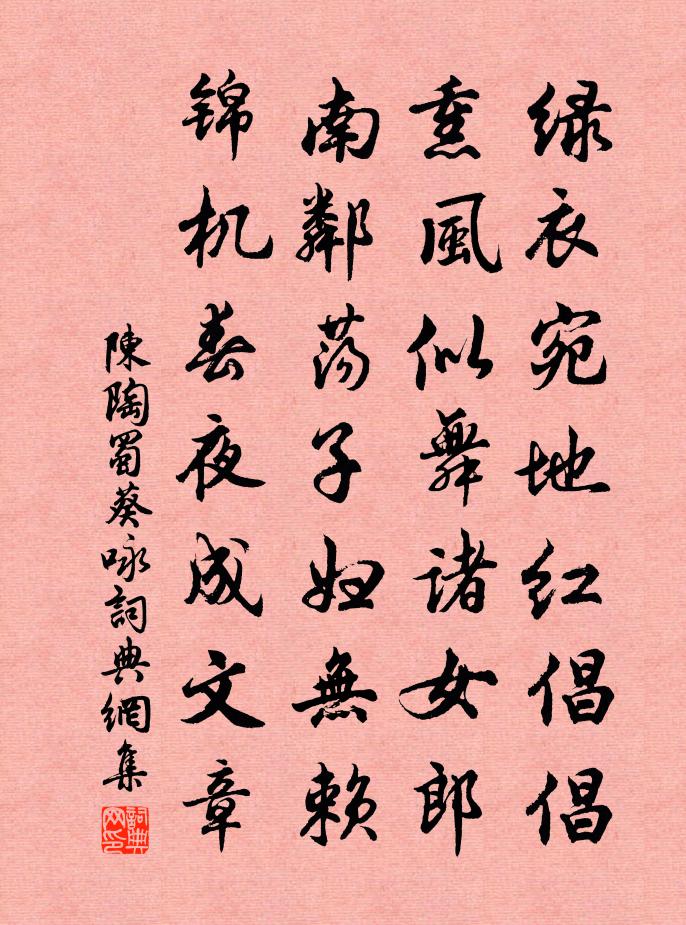 绿衣宛地红倡倡
熏風似舞諸女郎
南鄰蕩子妇無赖
锦机春夜成文章
陳陶蜀葵咏詞典網集
詞典网印